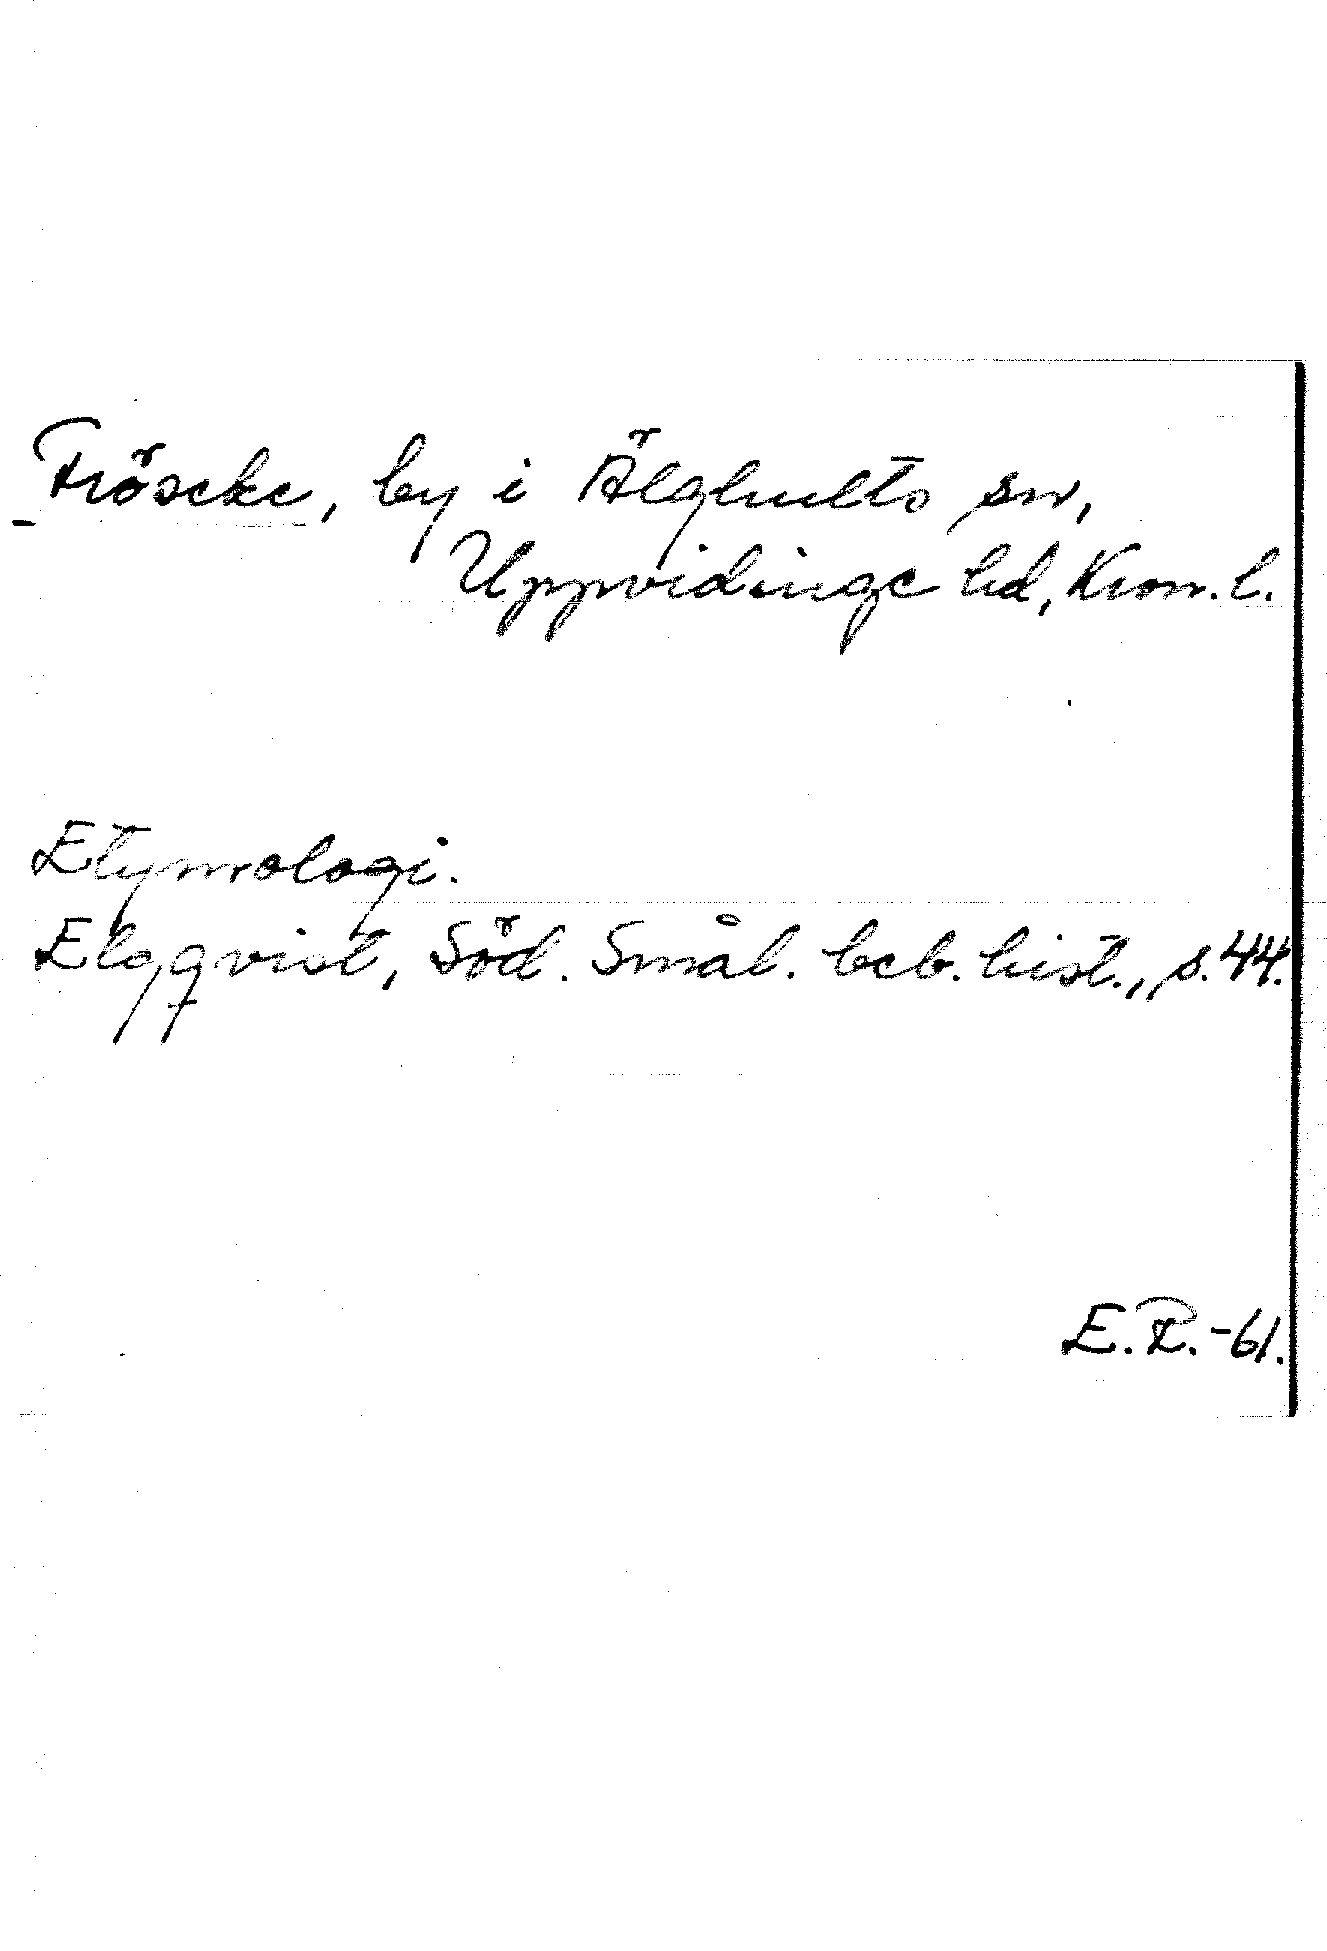 Fröseke, by i Älghults sn,
Uppvidinge hd, Kron. l.
Etymologi.
Elgqvist, Söd. Smål. beb. hist., s. 44.
E. R. -61.